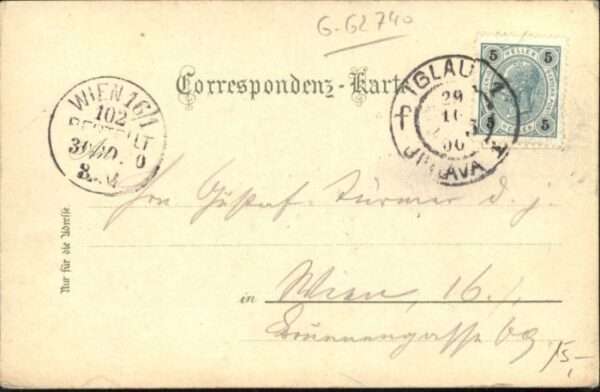 G-G2740
5 HELLER 5
5 5
Correspondenz-Karte
IGLAU
29
10
00
JIHLAVA
WIEN 16/1
102
BESTELLT
30
8
Gustaf Türmer d. j.
Nur für die Adresse
in Wien, 16.
Brunnengasse 69
15,-